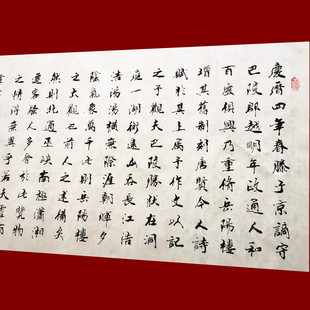 慶曆四年春滕子京謫守
巴陵郡越明年政通人和
百廢俱興乃重脩岳陽樓
增其舊制刻唐賢今人詩
賦於其上屬予作文以記
之予觀夫巴陵勝狀在洞
庭一湖銜遠山吞長江浩
浩湯湯橫無際涯朝暉夕
陰氣象萬千此則岳陽樓
之大觀也前人之述備矣
然則北通巫峽南極瀟湘
遷客騷人多會於此覽物
之情得無異乎若夫霪雨